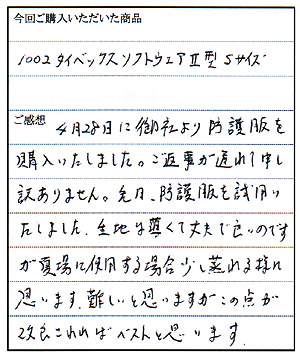 今回ご購入いただいた商品
1002 タイベックスソフトウェアⅢ型 Sサイズ
ご感想 4月28日に御社より防護服を
購入いたしました。ご返事が遅れて申し
訳ありません。先日、防護服を試用い
たしました。生地は薄くて丈夫で良いのです
が夏場に使用する場合少し蒸れる様に
思います。難しいと思いますがこの点が
改良されればベストと思います。